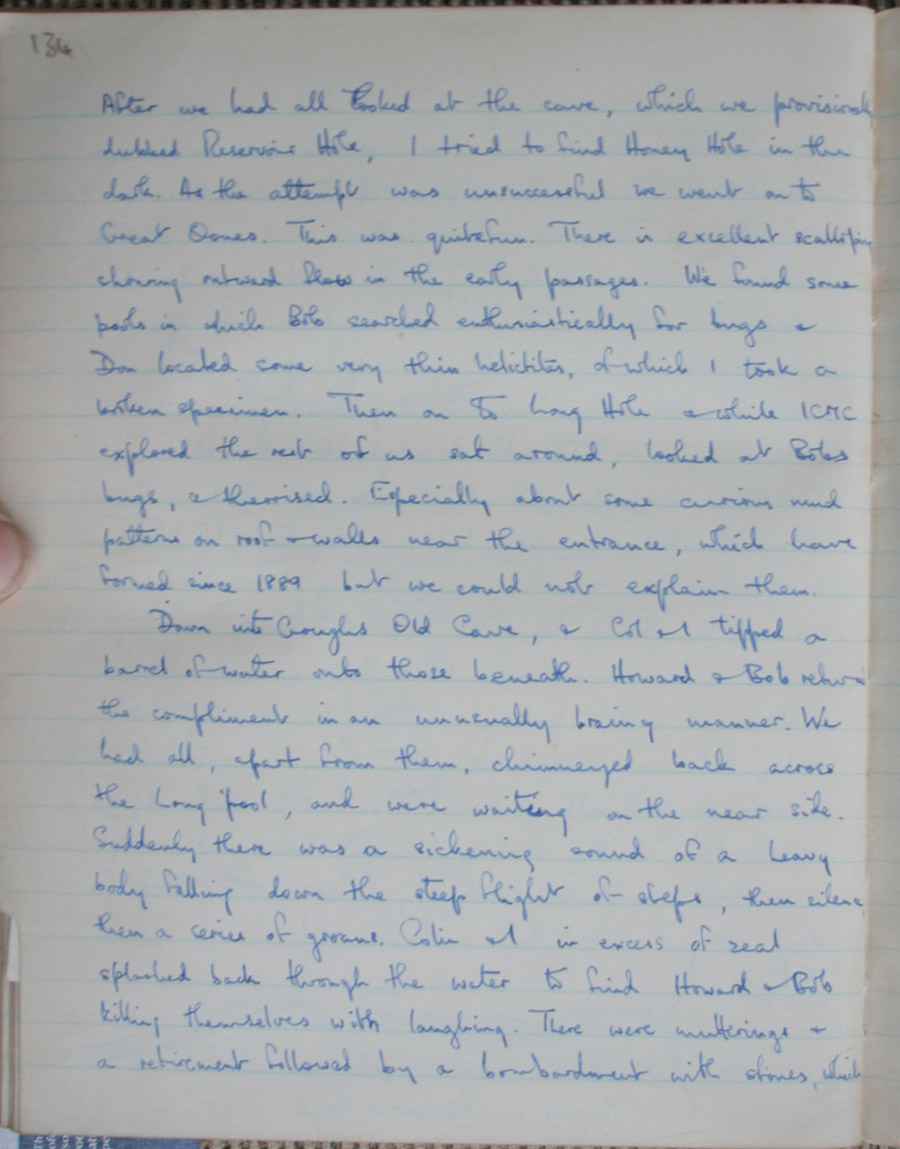 134
After we had all looked at the cave, which we provisionally
dubbed Reservoir Hole, I tried to find Honey Hole in the
dark. As the attempt was unsuccessful we went on to
Great Oones. This was quite fun. There is excellent scalloping
showing outward flow in the early passages. We found some
pools in which Bob searched enthusiastically for bugs &
Don located some very thin helictites, of which I took a
broken specimen. Then on to Long Hole & while ICMC
explored the rest of us sat around, looked at Bobs
bugs, & theorised. Especially about some curious mud
patterns on roof & walls near the entrance, which have
formed since 1889 but we could not explain them.
Down into Goughs Old Cave, & Col & I tipped a
barrel of water onto those beneath. Howard & Bob
the compliment in an unusually brainy manner. We
had all, apart from them, chimneyed back across
the Long Pool, and were waiting on the near side.
Suddenly there was a sickening sound of a heavy
body falling down the steep flight of steps, then silence
then a series of groans. Colin & I in excess of zeal
splashed back through the water to find Howard & Bob
killing themselves with laughing. There were mutterings &
a retirement followed by a bombardment with stones, which